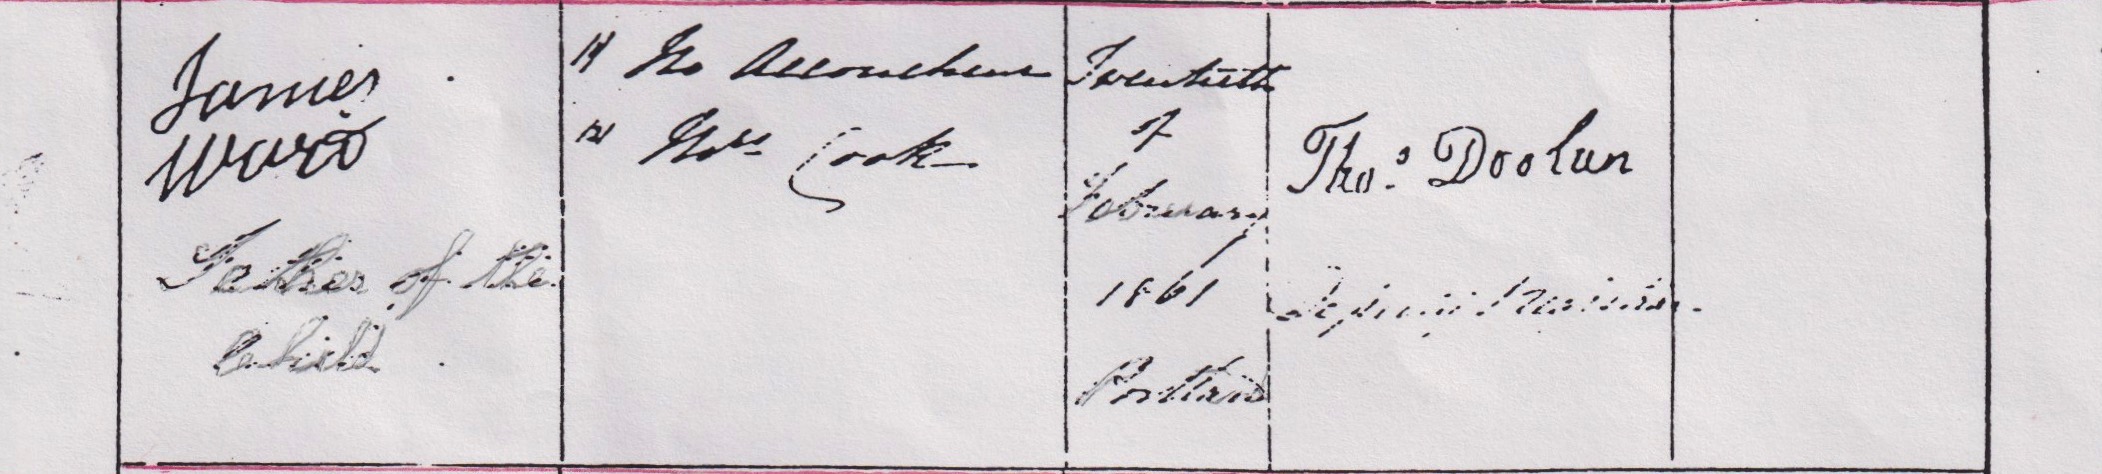 James
Ward
Father of the
Child
(1) No Accoucheur
(2) Mrs Cook
Twentieth
of
February
1861
Portland
Thos. Doolan
Deputy Registrar